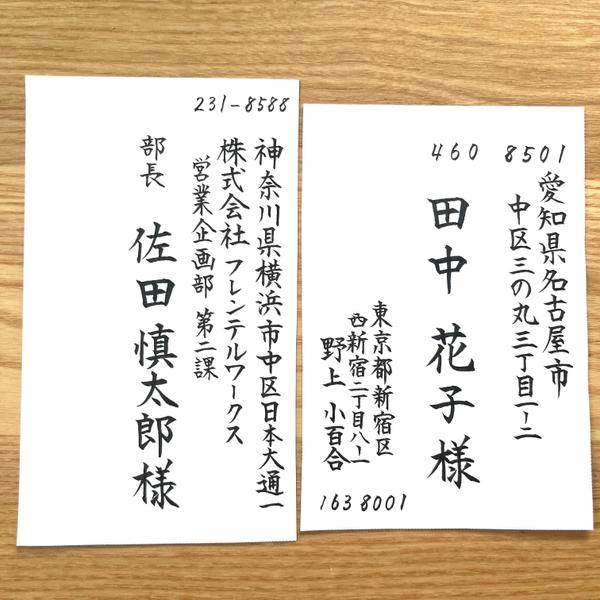 231-8588
神奈川県横浜市中区日本大通一
株式会社 フレンテルワークス
営業企画部 第二課
部長
佐田 慎太郎様
460 8501
愛知県名古屋市
中区三の丸三丁目一-二
田中 花子様
東京都新宿区
西新宿二丁目八-一
野上 小百合
163 8001